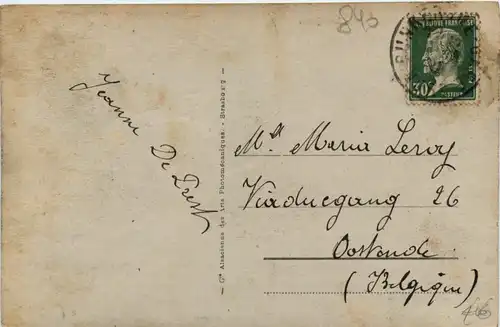 845
RÉPUBLIQUE FRANÇAISE
30c
PASTEUR
POSTES
Jeanne De Drest
Cie Alsacienne des Arts Photomécaniques. - Strasbourg
Mlle Maria Leroy
Viaducgang 26
Oostende
(Belgique)